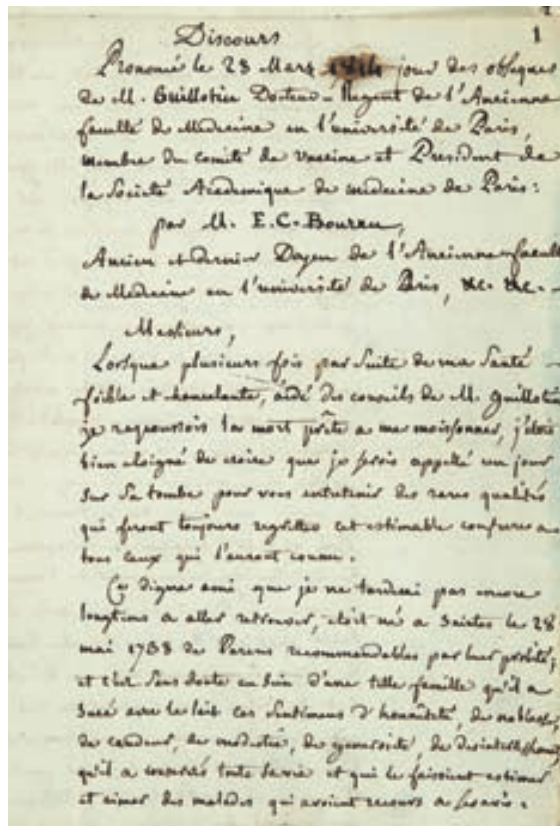 1
Discours
Prononcé le 28 Mars 1814 jour des obseques
de M. Guillotin Docteur-Regent de l'Ancienne
faculté de Medecine en l'université de Paris,
membre du comité de vaccine et President de
la Societé Academique de medecine de Paris:
par M. E.C. Bourru,
Ancien et dernier Doyen de l'Ancienne faculté
de Medecine en l'université de Paris, &c. &c.
Messieurs,
Lorsque plusieurs fois par suite de ma santé
foible et chancelante, aidé des conseils de M. Guillotin
je repoussois la mort prête a me moissonner, j'étois
bien eloigné de croire que je serois appellé un jour
sur sa tombe pour vous entretenir des rares qualités
qui feront toujours regretter cet estimable confrere a
tous ceux qui l'auront connu.
Ce digne ami que je ne tarderai pas encore
longtems a aller retrouver, etoit né a Saintes le 28
mai 1738 de Parens recommendables par leur probité;
et c'est sans doute au sein d'une telle famille qu'il a
sucé avec le lait ces sentimens d'honnêteté, de noblesse,
de candeur, de modestie, de generosité, de
qu'il a conservés toute sa vie et qui le faisoient estimer
et aimer des malades qui avoient recours a ses avis.